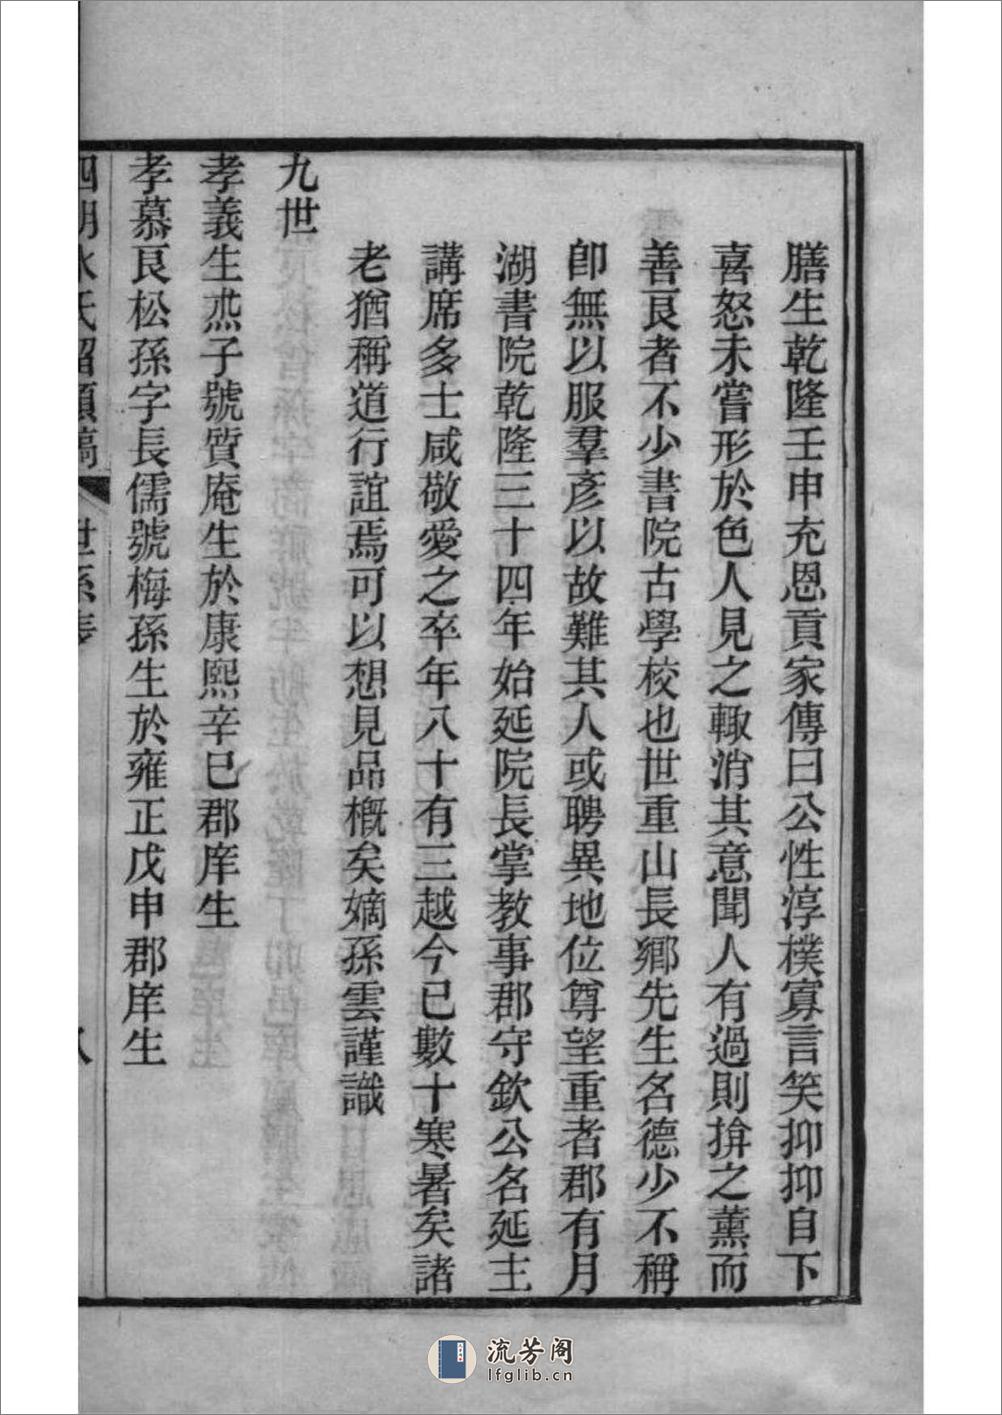 膳生乾隆壬申充恩貢家傳曰公性淳樸寡言笑抑抑自下
喜怒未嘗形於色人見之輙消其意聞人有過則揜之薰而
善艮者不少書院古學校也世重山長鄉先生名德少不稱
卽無以服羣彥以故難其人或聘異地位尊望重者郡有月
湖書院乾隆三十四年始延院長掌教事郡守欽公名延主
講席多士咸敬愛之卒年八十有三越今已數十寒暑矣諸
老猶稱道行誼焉可以想見品槪矣嫡孫雲謹識
九世
孝義生烝子號質庵生於康熙辛巳郡庠生
孝慕艮松孫字長儒號梅孫生於雍正戊申郡庠生
世系表
八
流芳阁
lfglib.cn